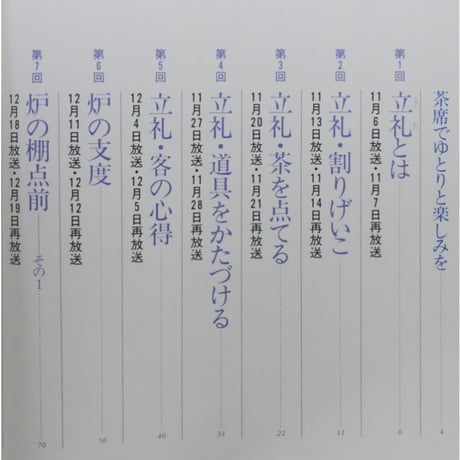 茶席でゆとりと楽しみを
4
第1回
立礼とは
11月6日放送・11月7日再放送
6
第2回
立礼・割りげいこ
11月13日放送・11月14日再放送
11
第3回
立礼・茶を点てる
11月20日放送・11月21日再放送
22
第4回
立礼・道具をかたづける
11月27日放送・11月28日再放送
31
第5回
立礼・客の心得
12月4日放送・12月5日再放送
40
第6回
炉の支度
12月11日放送・12月12日再放送
56
第7回
炉の棚点前 その1
12月18日放送・12月19日再放送
70